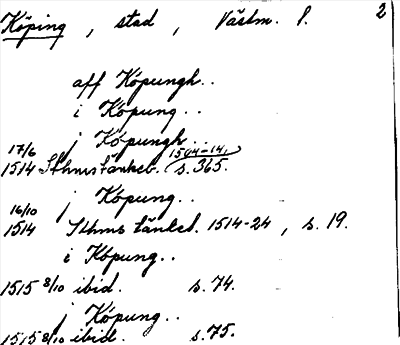 Köping, stad, Västm. l. 2
aff Köpungh..
i Köpung..
j Köpungh
17/6 1514 Sthms tänkeb. 1504-14, s. 365.
j Köpung..
16/10 1514 Sthms tänkeb. 1514-24, s. 19.
i Köpung..
1515 8/10 ibid. s. 74.
j Köpung..
1515 8/10 ibid. s. 75.